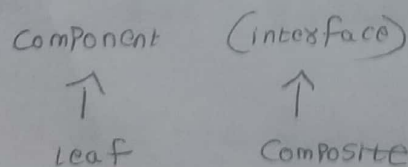 Component (interface)
Leaf Composite